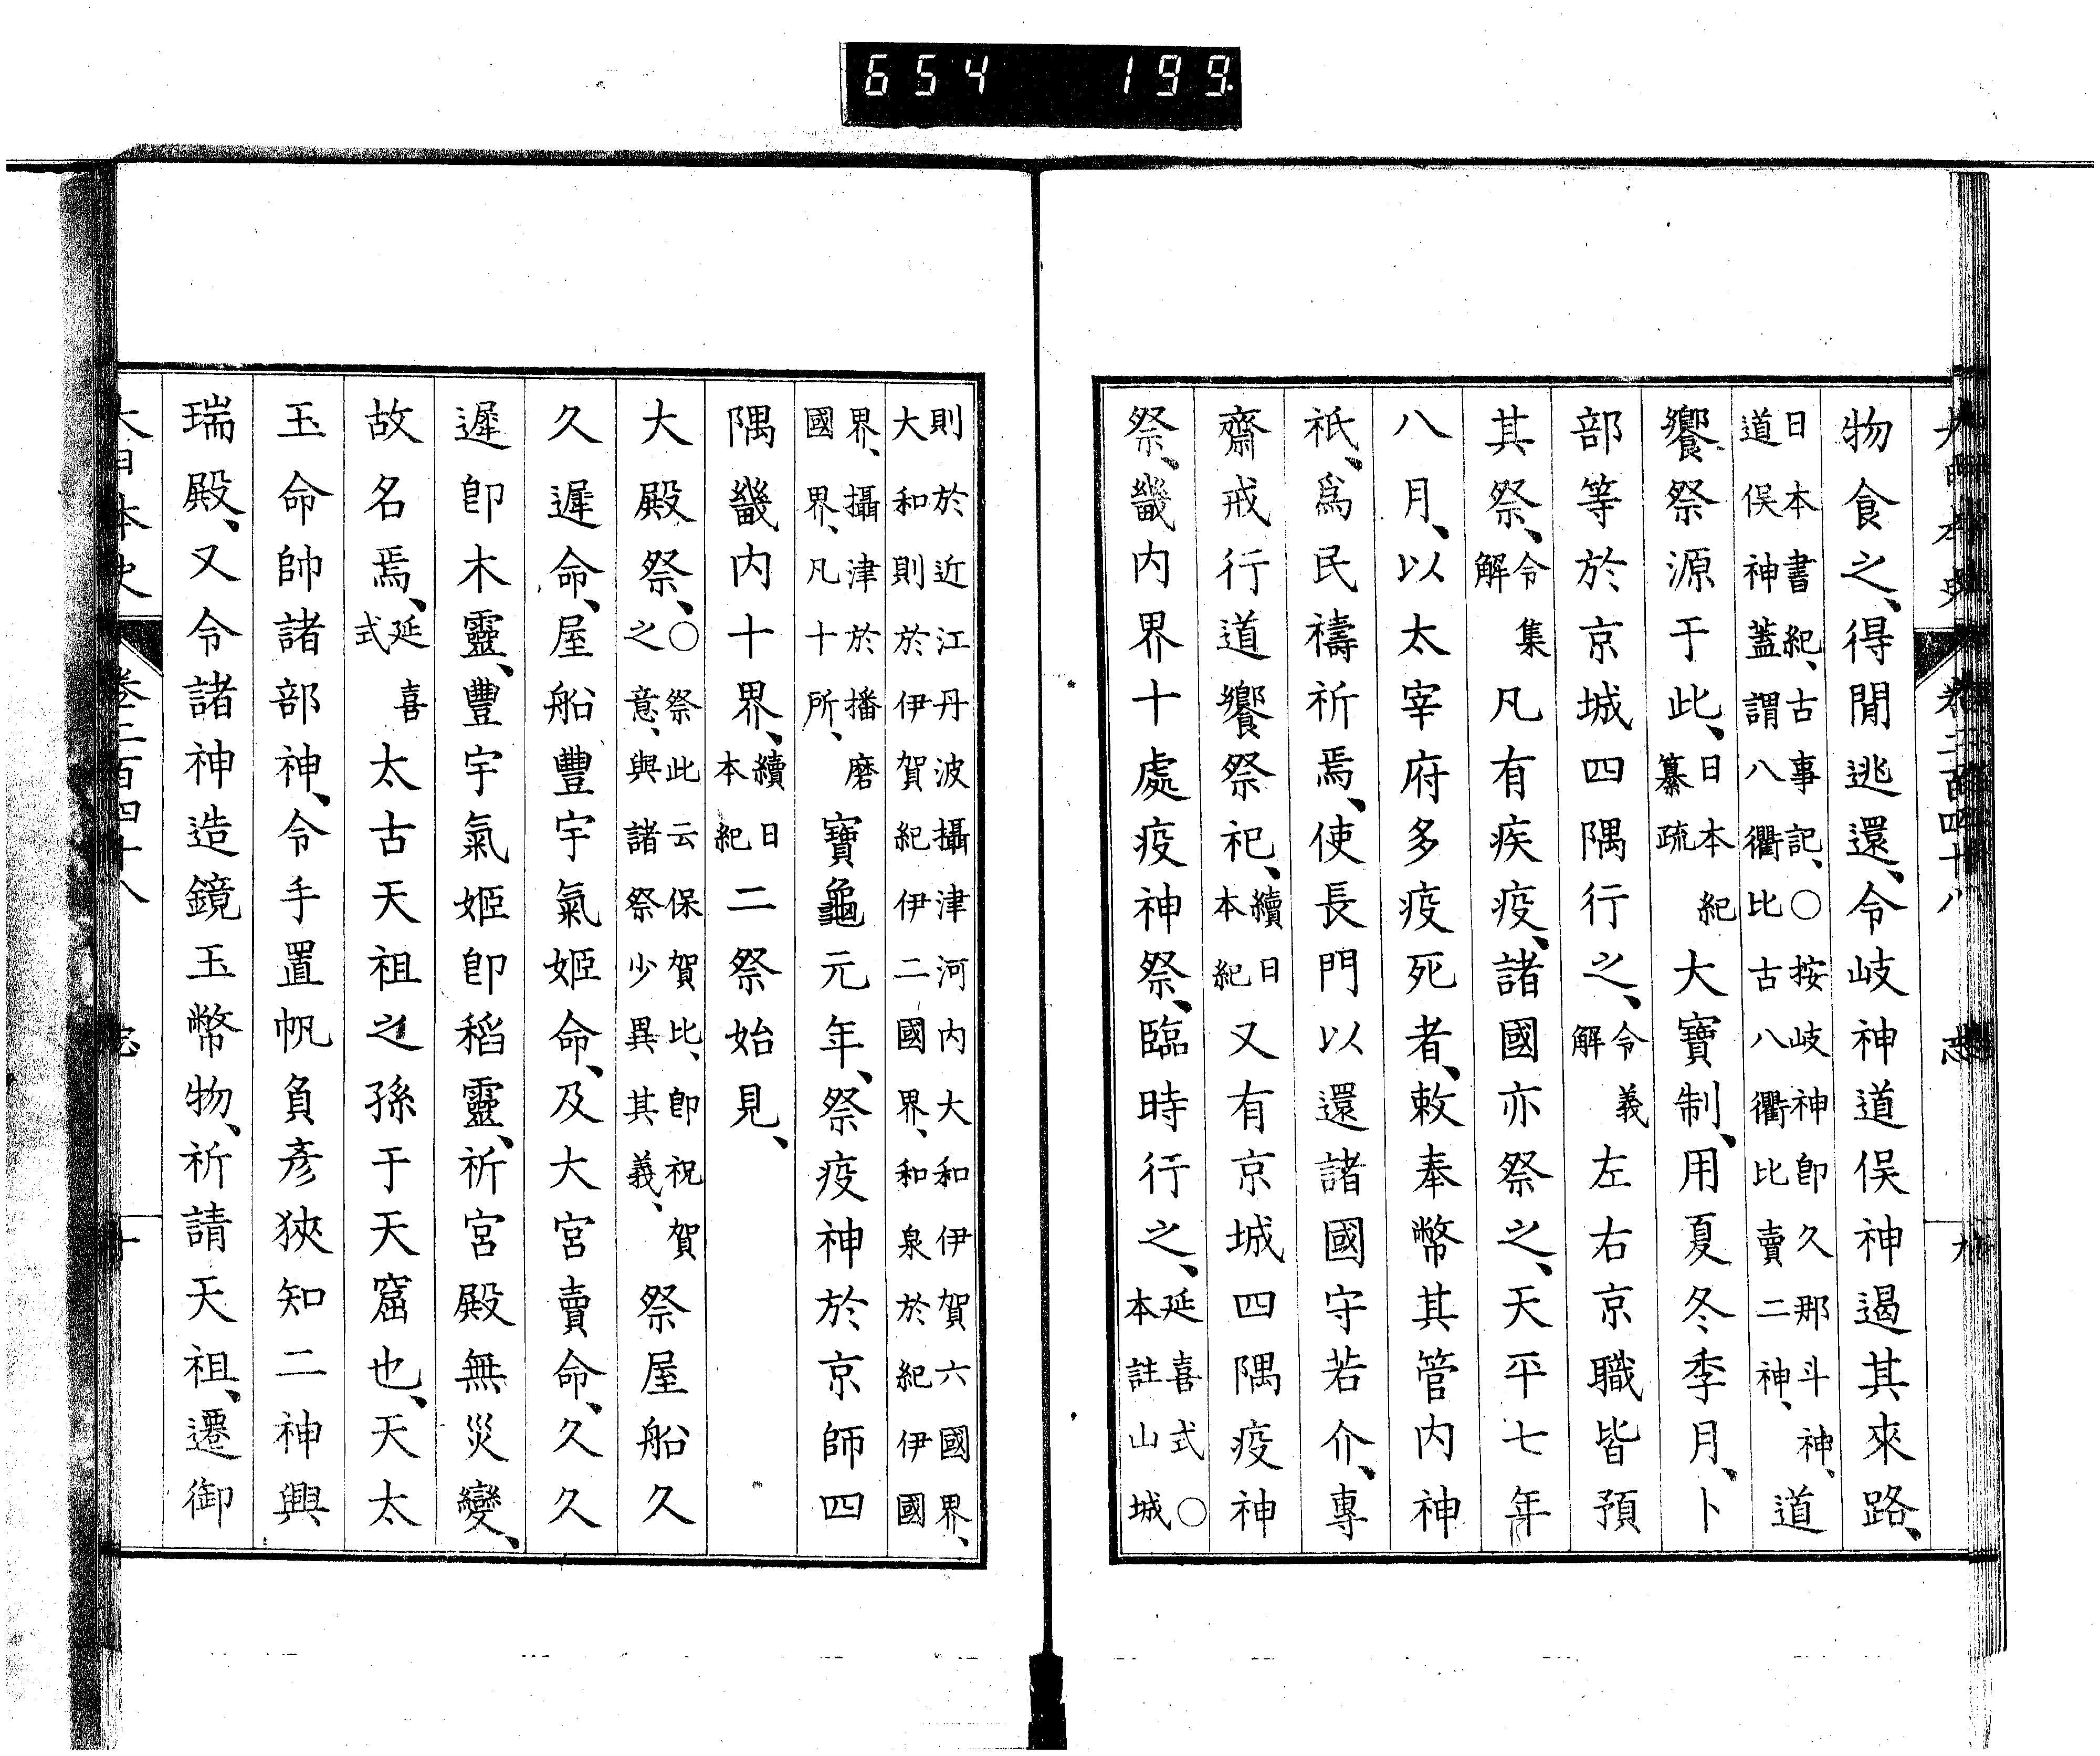 654 199
物食之、得閒逃還、令岐神道俣神遏其來路、
日本書紀、古事記、○按岐神卽久那斗神、
道俣神蓋謂八衢比古八衢比賣二神、
道
饗祭源于此、日本紀
纂疏
大寶制、用夏冬季月、卜
部等於京城四隅行之、令義
解
左右京職皆預
其祭、令集
解
凡有疾疫、諸國亦祭之、天平七年
八月、以太宰府多疫死者、敕奉幣其管內神
祇、爲民禱祈焉、使長門以還諸國守若介、專
齋戒行道饗祭祀、續日
本紀
又有京城四隅疫神
祭、畿內界十處疫神祭、臨時行之、延喜式○
本註山城
則於近江丹波攝津河內大和伊賀六國界、
大和則於伊賀紀伊二國界、和泉於紀伊國
界、攝於播磨
國界、凡十所、
寶龜元年、祭疫神於京師四
隅畿內十界、續日
本紀
二祭始見、
大殿祭、○祭此云保賀比、卽祝賀
之意、與諸祭少異其義、
祭屋船久
久遲命、屋船豐宇氣姬命、及大宮賣命、久久
遲卽木靈、豐宇氣姬卽稻靈、祈宮殿無災變、
故名焉、延喜
式
太古天祖之孫于天窟也、天太
玉命帥諸部神、令手置帆負彥狹知二神興
瑞殿、又令諸神造鏡玉幣物、祈請天祖、遷御
大日本史
卷二百四十八
志
十